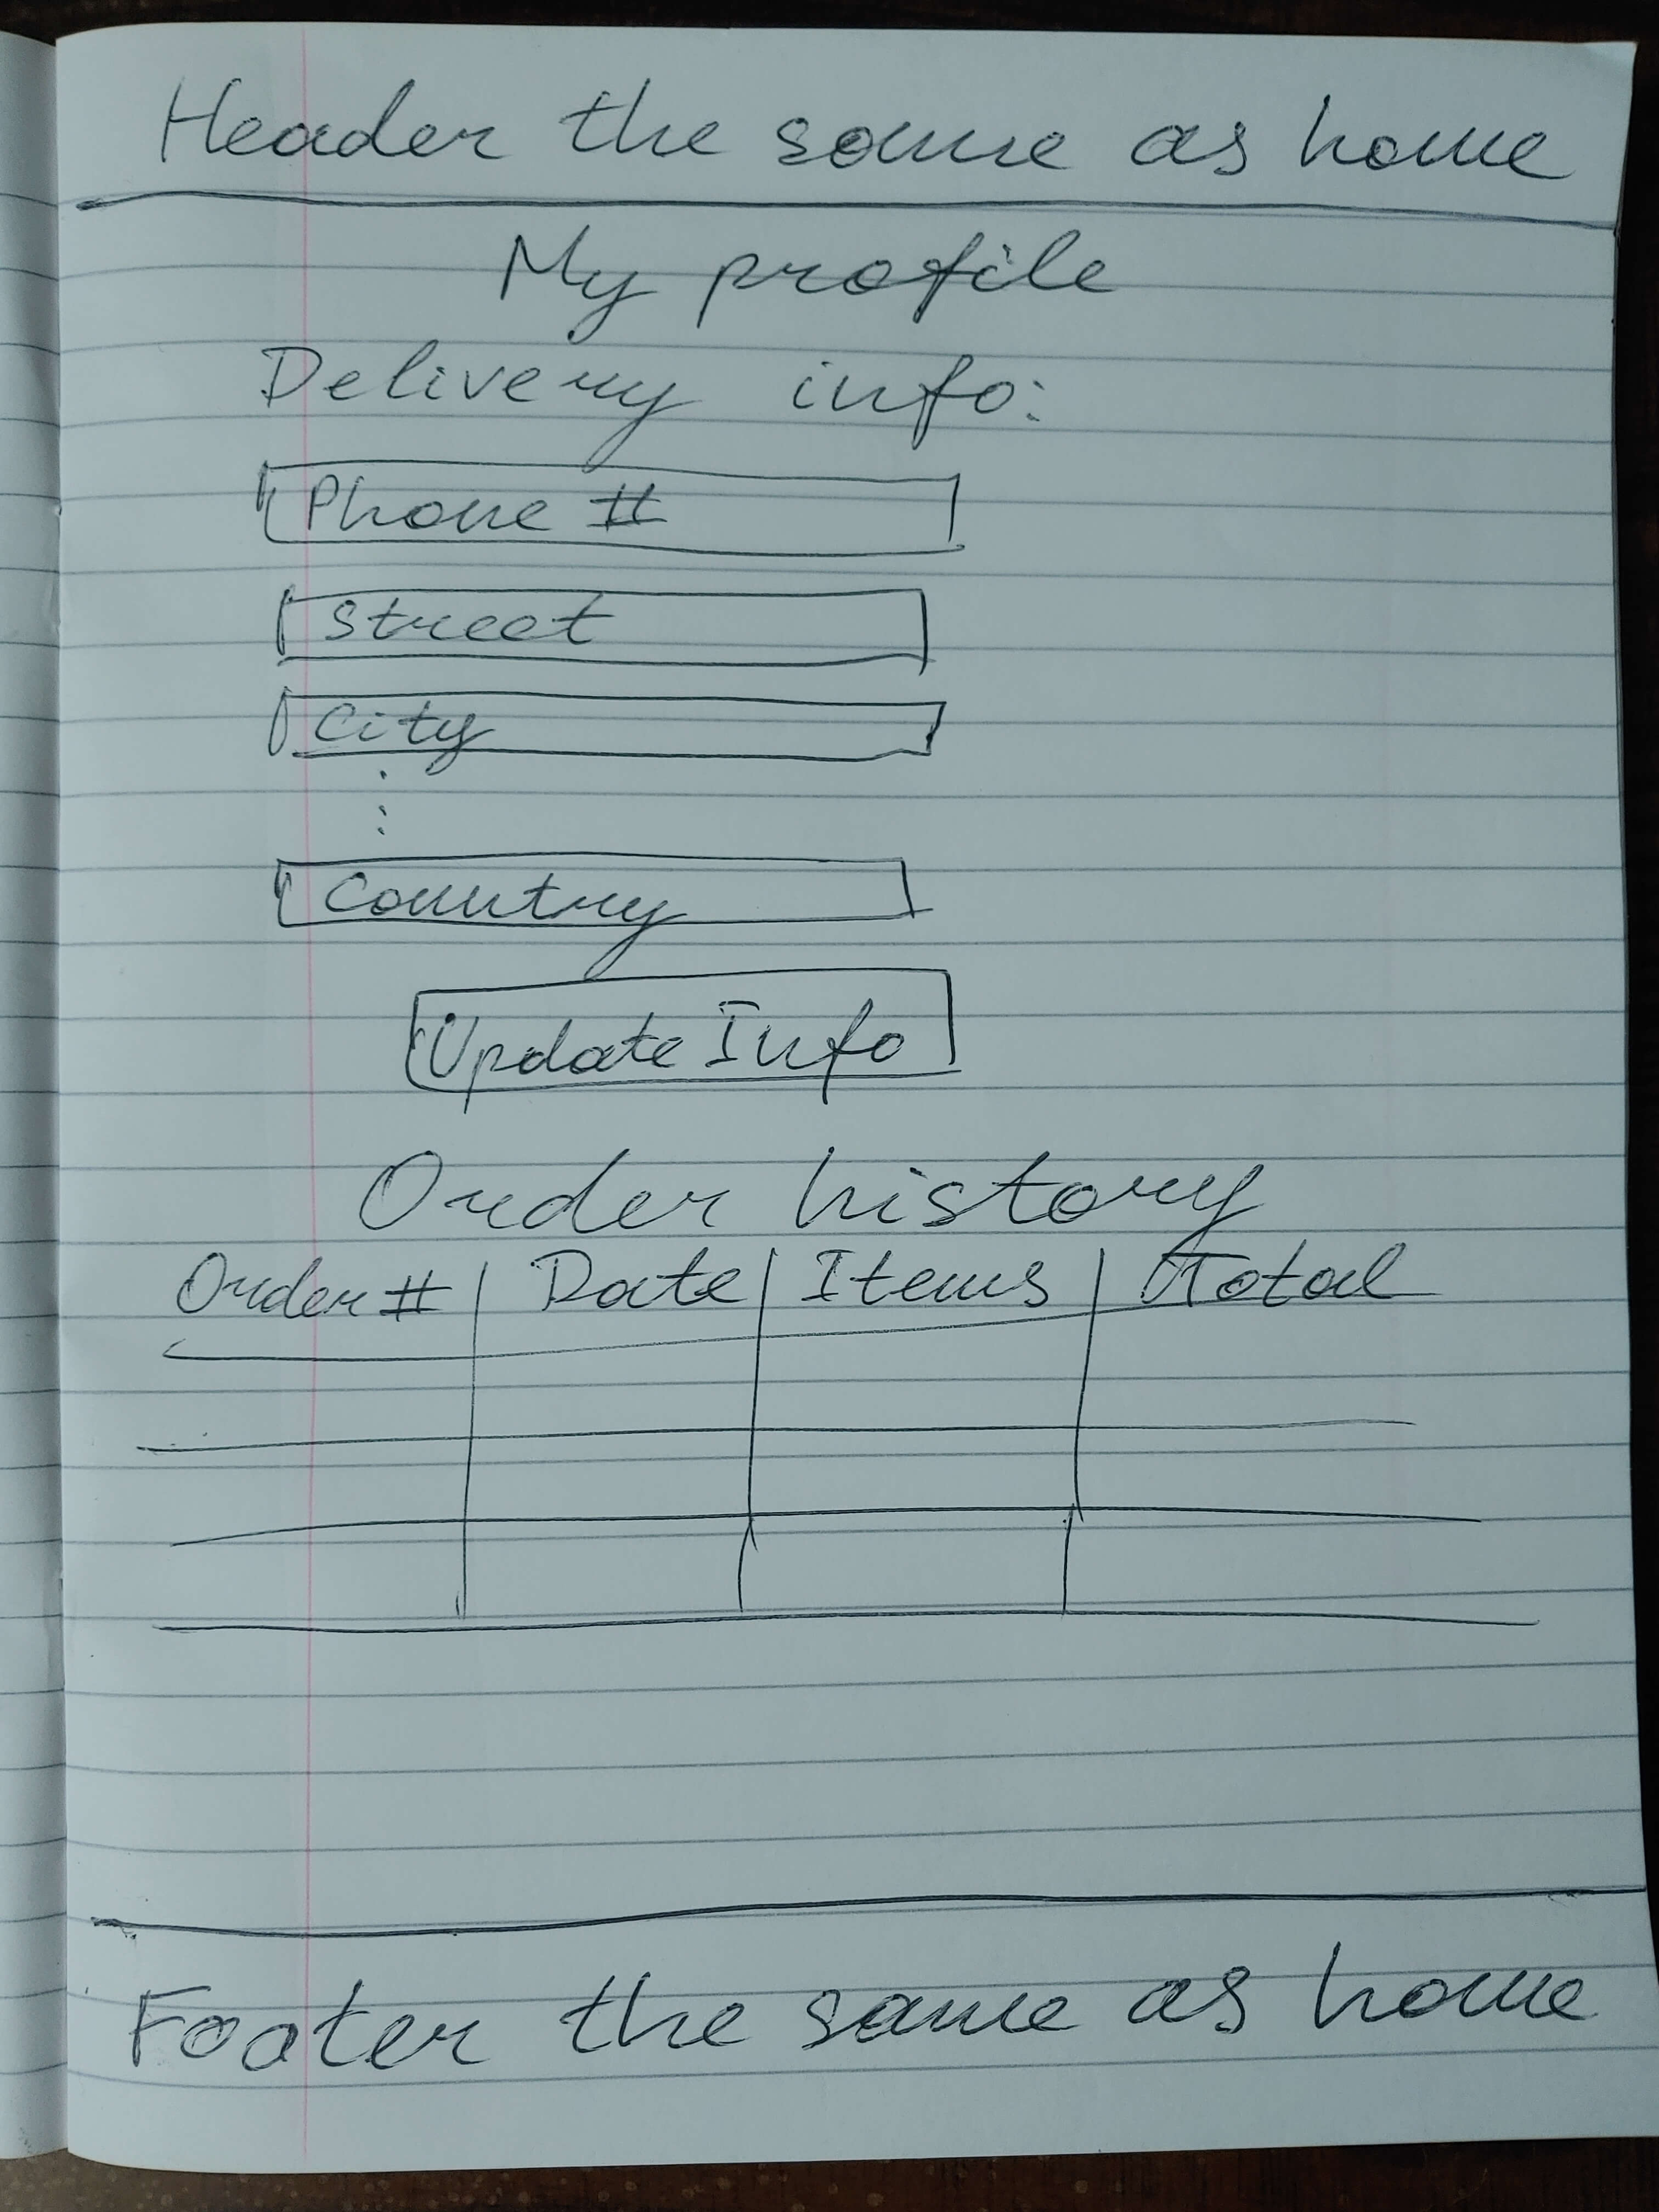 Header the same as home
My profile
Delivery info:
Phone #
Street
City
:
Country
Update Info
Order history
Order # Date Items Total
Footer the same as home